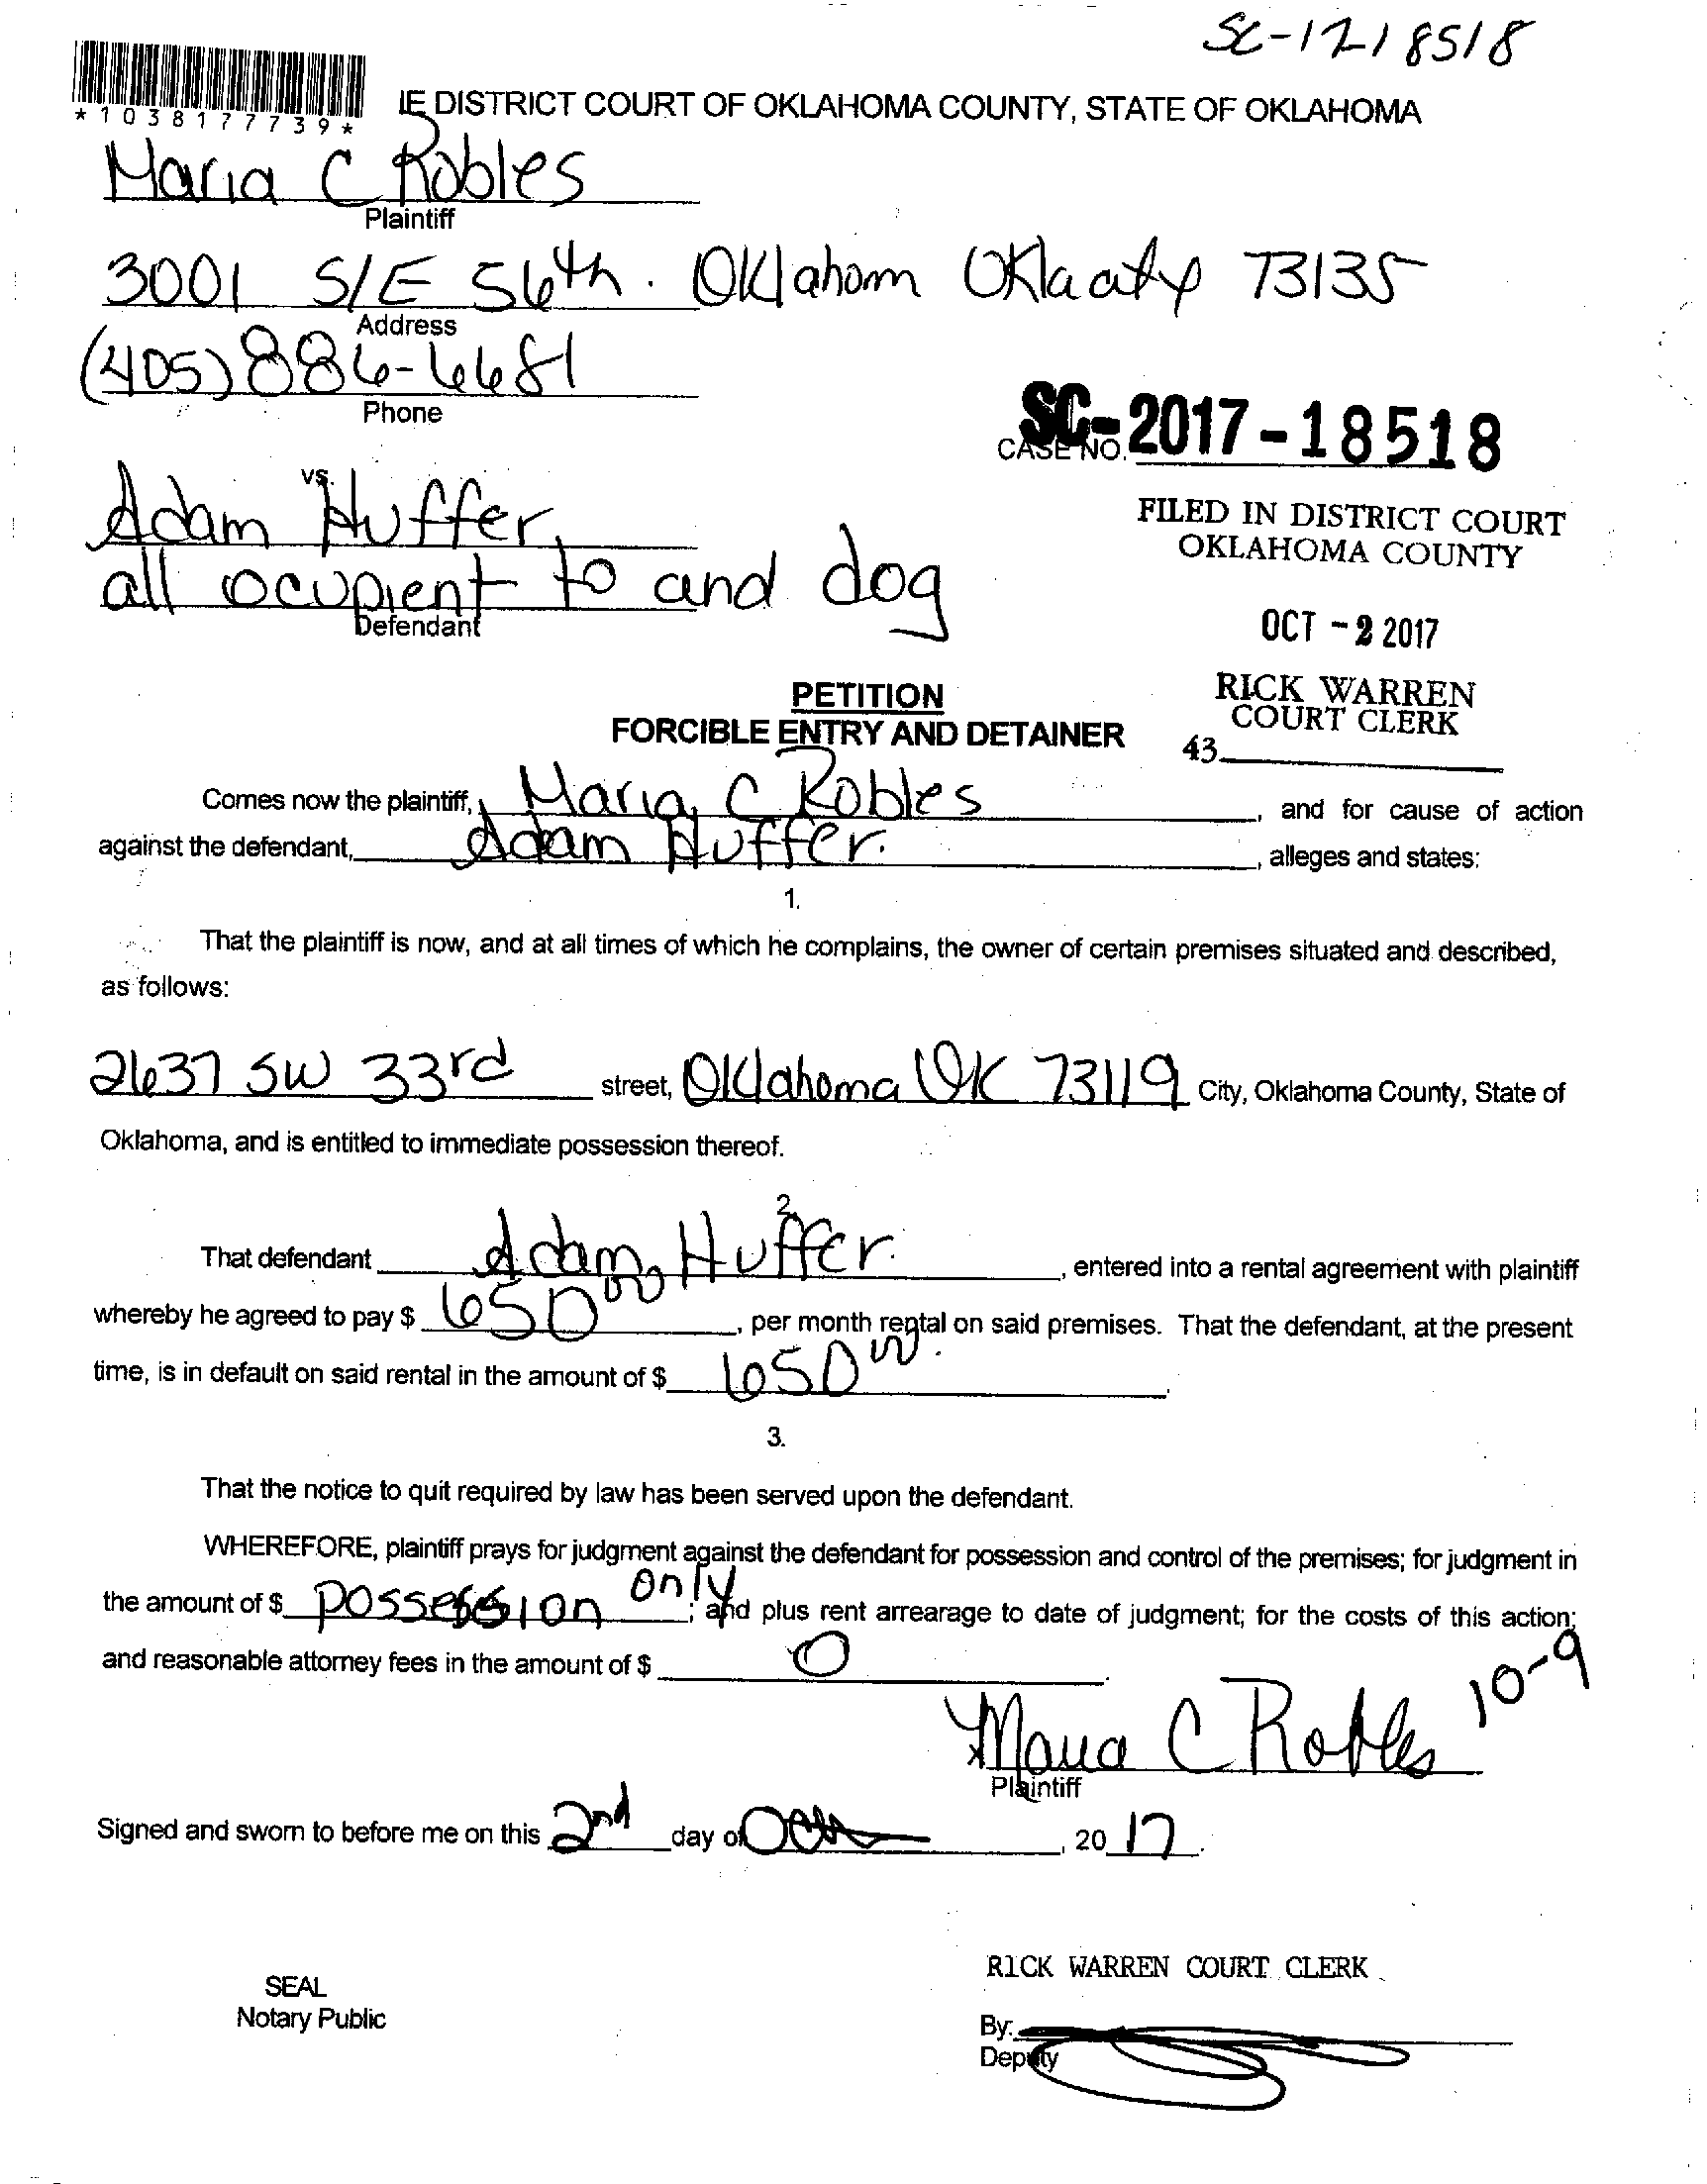 SC-17-18518
*1038177739*
IE DISTRICT COURT OF OKLAHOMA COUNTY, STATE OF OKLAHOMA
Maria C Robles
Plaintiff
3001 S/E 56th. Oklahom Okla city 73135
Address
(405) 886-6681
Phone
SC-2017-18518
CASE NO.
vs.
Adam Huffer,
all ocupient to and dog
Defendant
FILED IN DISTRICT COURT
OKLAHOMA COUNTY
OCT -2 2017
RICK WARREN
COURT CLERK
43
PETITION
FORCIBLE ENTRY AND DETAINER
Comes now the plaintiff, Maria C Robles, and for cause of action
against the defendant, Adam Huffer., alleges and states:
1.
That the plaintiff is now, and at all times of which he complains, the owner of certain premises situated and described,
as follows:
2637 SW 33rd street, Oklahoma OK 73119 City, Oklahoma County, State of
Oklahoma, and is entitled to immediate possession thereof.
2.
That defendant Adam Huffer., entered into a rental agreement with plaintiff
whereby he agreed to pay $ 650 00, per month rental on said premises. That the defendant, at the present
time, is in default on said rental in the amount of $ 650 00.
3.
That the notice to quit required by law has been served upon the defendant.
WHEREFORE, plaintiff prays for judgment against the defendant for possession and control of the premises; for judgment in
the amount of $ possession only; and plus rent arrearage to date of judgment; for the costs of this action;
and reasonable attorney fees in the amount of $ 0.
10-9
x Maria C Robles
Plaintiff
Signed and sworn to before me on this 2nd day of Oct, 20 17.
RICK WARREN COURT CLERK
SEAL
Notary Public
By:
Deputy